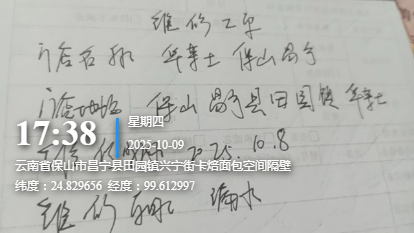 维修工单
门店名称 华莱士 保山昌宁
门店地址 保山昌宁县田园镇华莱士
17:38
星期四
2025-10-09
2025.10.8
云南省保山市昌宁县田园镇兴宁街卡焙面包空间隔壁
纬度：24.829656 经度：99.612997
维修 漏水